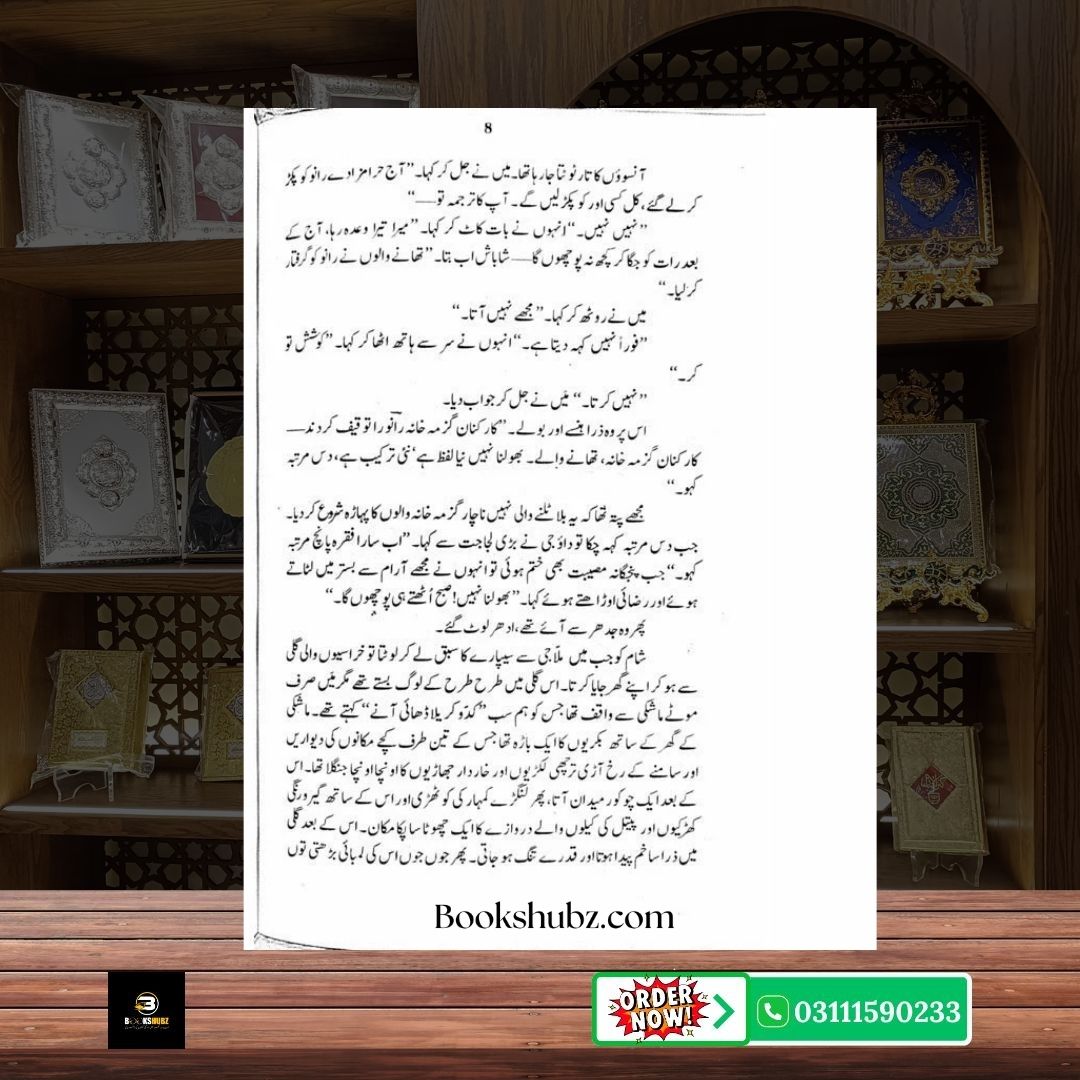 8
آنسوؤں کا تار ٹوٹتا جا رہا تھا۔ میں نے جل کر کہا۔ ”آج حرامزادے رانو کو پکڑ
کر لے گئے، کل کسی اور کو پکڑ لیں گے۔ آپ کا ترجمہ تو—“
”نہیں نہیں۔“ انہوں نے بات کاٹ کر کہا۔ ”میرا تیرا وعدہ رہا، آج کے
بعد رات کو جگا کر کچھ نہ پوچھوں گا— شاباش اب بتا۔ ”تھانے والوں نے رانو کو گرفتار
کر لیا۔“
میں نے روٹھ کر کہا۔ ”مجھے نہیں آتا۔“
”فوراً نہیں کہہ دیتا ہے۔“ انہوں نے سر سے ہاتھ اٹھا کر کہا۔ ”کوشش تو
کر۔“
”نہیں کرتا۔“ میں نے جل کر جواب دیا۔
اس پر وہ ذرا ہنسے اور بولے۔ ”کارکنان گزمہ خانہ رانو را توقیف کردند—
کارکنان گزمہ خانہ، تھانے والے۔ بھولنا نہیں نیا لفظ ہے‘ نئی ترکیب ہے، دس مرتبہ
کہو۔“
مجھے پتہ تھا کہ یہ بلا ٹلنے والی نہیں ناچار گزمہ خانہ والوں کا پہاڑہ شروع کر دیا۔
جب دس مرتبہ کہہ چکا تو داؤ جی نے بڑی لجاجت سے کہا۔ ”اب سارا فقرہ پانچ مرتبہ
کہو۔“ جب پنجگانہ مصیبت بھی ختم ہوئی تو انہوں نے مجھے آرام سے بستر میں لٹاتے
ہوئے اور رضائی اوڑھاتے ہوئے کہا۔ ”بھولنا نہیں! صبح اُٹھتے ہی پوچھوں گا۔“
پھر وہ جدھر سے آئے تھے، ادھر لوٹ گئے۔
شام کو جب میں ملّا جی سے سیپارے کا سبق لے کر لوٹتا تو خراسیوں والی گلی
سے ہو کر اپنے گھر جایا کرتا۔ اس گلی میں طرح طرح کے لوگ بستے تھے مگر میں صرف
موٹے ماشکی سے واقف تھا جس کو ہم سب ”کدّو کریلا ڈھائی آنے“ کہتے تھے۔ ماشکی
کے گھر کے ساتھ بکریوں کا ایک باڑہ تھا جس کے تین طرف کچے مکانوں کی دیواریں
اور سامنے کے رخ آڑی ترچھی لکڑیوں اور خاردار جھاڑیوں کا اونچا اونچا جنگلا تھا۔ اس
کے بعد ایک چوکور میدان آتا، پھر لنگڑے کمہار کی کوٹھڑی اور اس کے ساتھ گیرورنگی
کھڑکیوں اور پیتل کی کیلوں والے دروازے کا ایک چھوٹا سا پکا مکان۔ اس کے بعد گلی
میں ذرا سا خم پیدا ہوتا اور قدرے تنگ ہو جاتی۔ پھر جوں جوں اس کی لمبائی بڑھتی توں
Bookshubz.com
BOOKSHUBZ
ORDER NOW!
03111590233